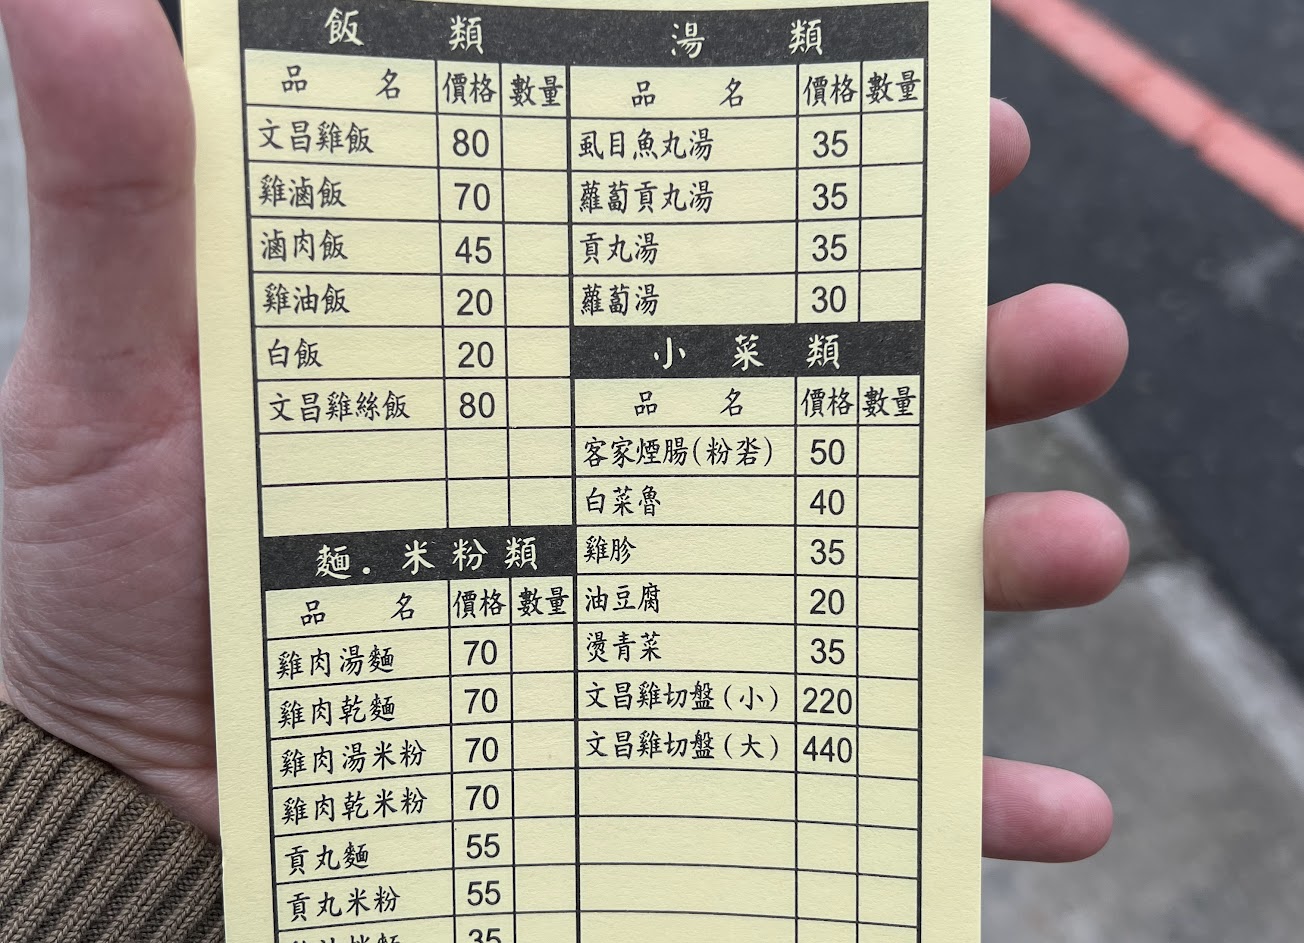 飯 類
品 名 價格 數量
文昌雞飯 80
雞滷飯 70
滷肉飯 45
雞油飯 20
白飯 20
文昌雞絲飯 80
麵．米粉類
品 名 價格 數量
雞肉湯麵 70
雞肉乾麵 70
雞肉湯米粉 70
雞肉乾米粉 70
貢丸麵 55
貢丸米粉 55
35
湯 類
品 名 價格 數量
虱目魚丸湯 35
蘿蔔貢丸湯 35
貢丸湯 35
蘿蔔湯 30
小菜類
品 名 價格 數量
客家煙腸(粉沯) 50
白菜魯 40
雞胗 35
油豆腐 20
燙青菜 35
文昌雞切盤(小) 220
文昌雞切盤(大) 440